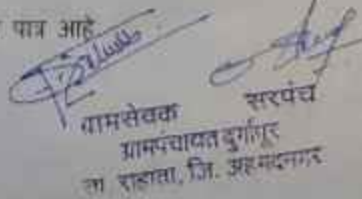 पात्र आहे
ग्रामसेवक सरपंच
ग्रामपंचायत दुर्गापूर
ता राहाता, जि. अहमदनगर